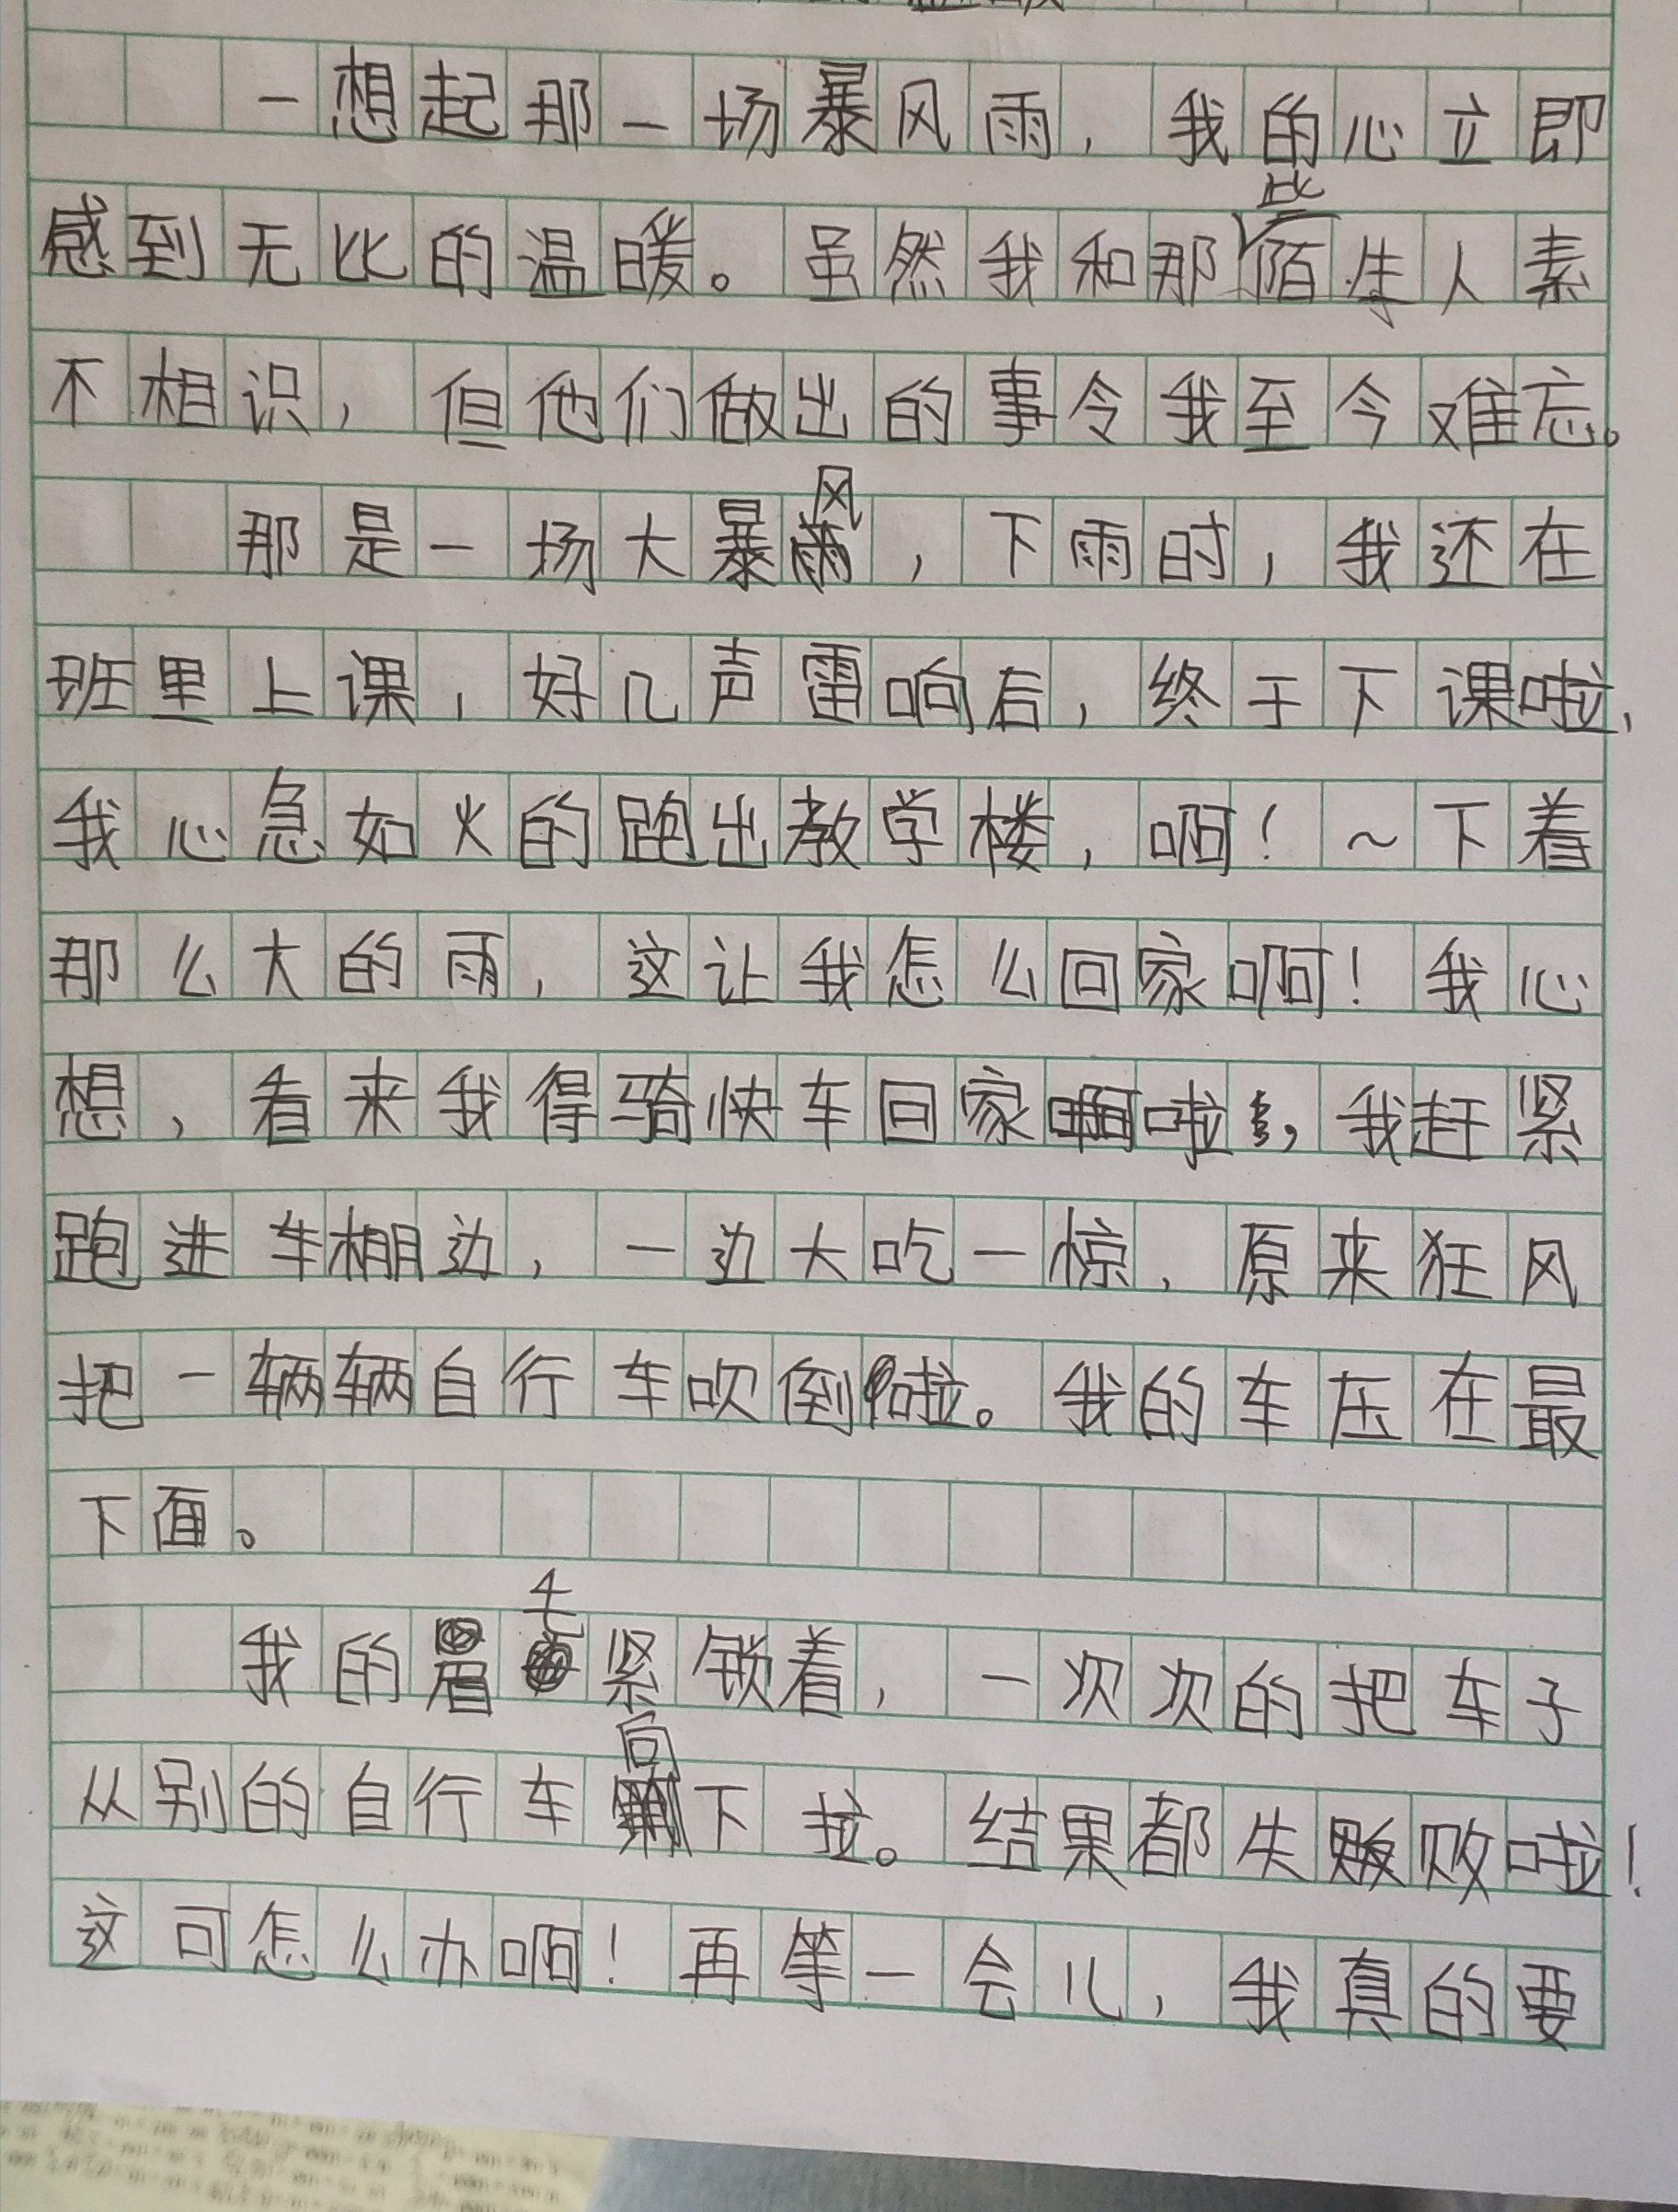 一想起那一场暴风雨，我的心立即
感到无比的温暖。虽然我和那些陌生人素
不相识，但他们做出的事令我至今难忘。
那是一场大暴风雨，下雨时，我还在
班里上课，好几声雷响后，终于下课啦，
我心急如火的跑出教学楼，啊！～下着
那么大的雨，这让我怎么回家啊！我心
想，看来我得骑快车回家啦，我赶紧
跑进车棚边，一边大吃一惊，原来狂风
把一辆辆自行车吹倒啦。我的车压在最
下面。
我的眉毛紧锁着，一次次的把车子
从别的自行车向下拉。结果都失败啦！
这可怎么办啊！再等一会儿，我真的要